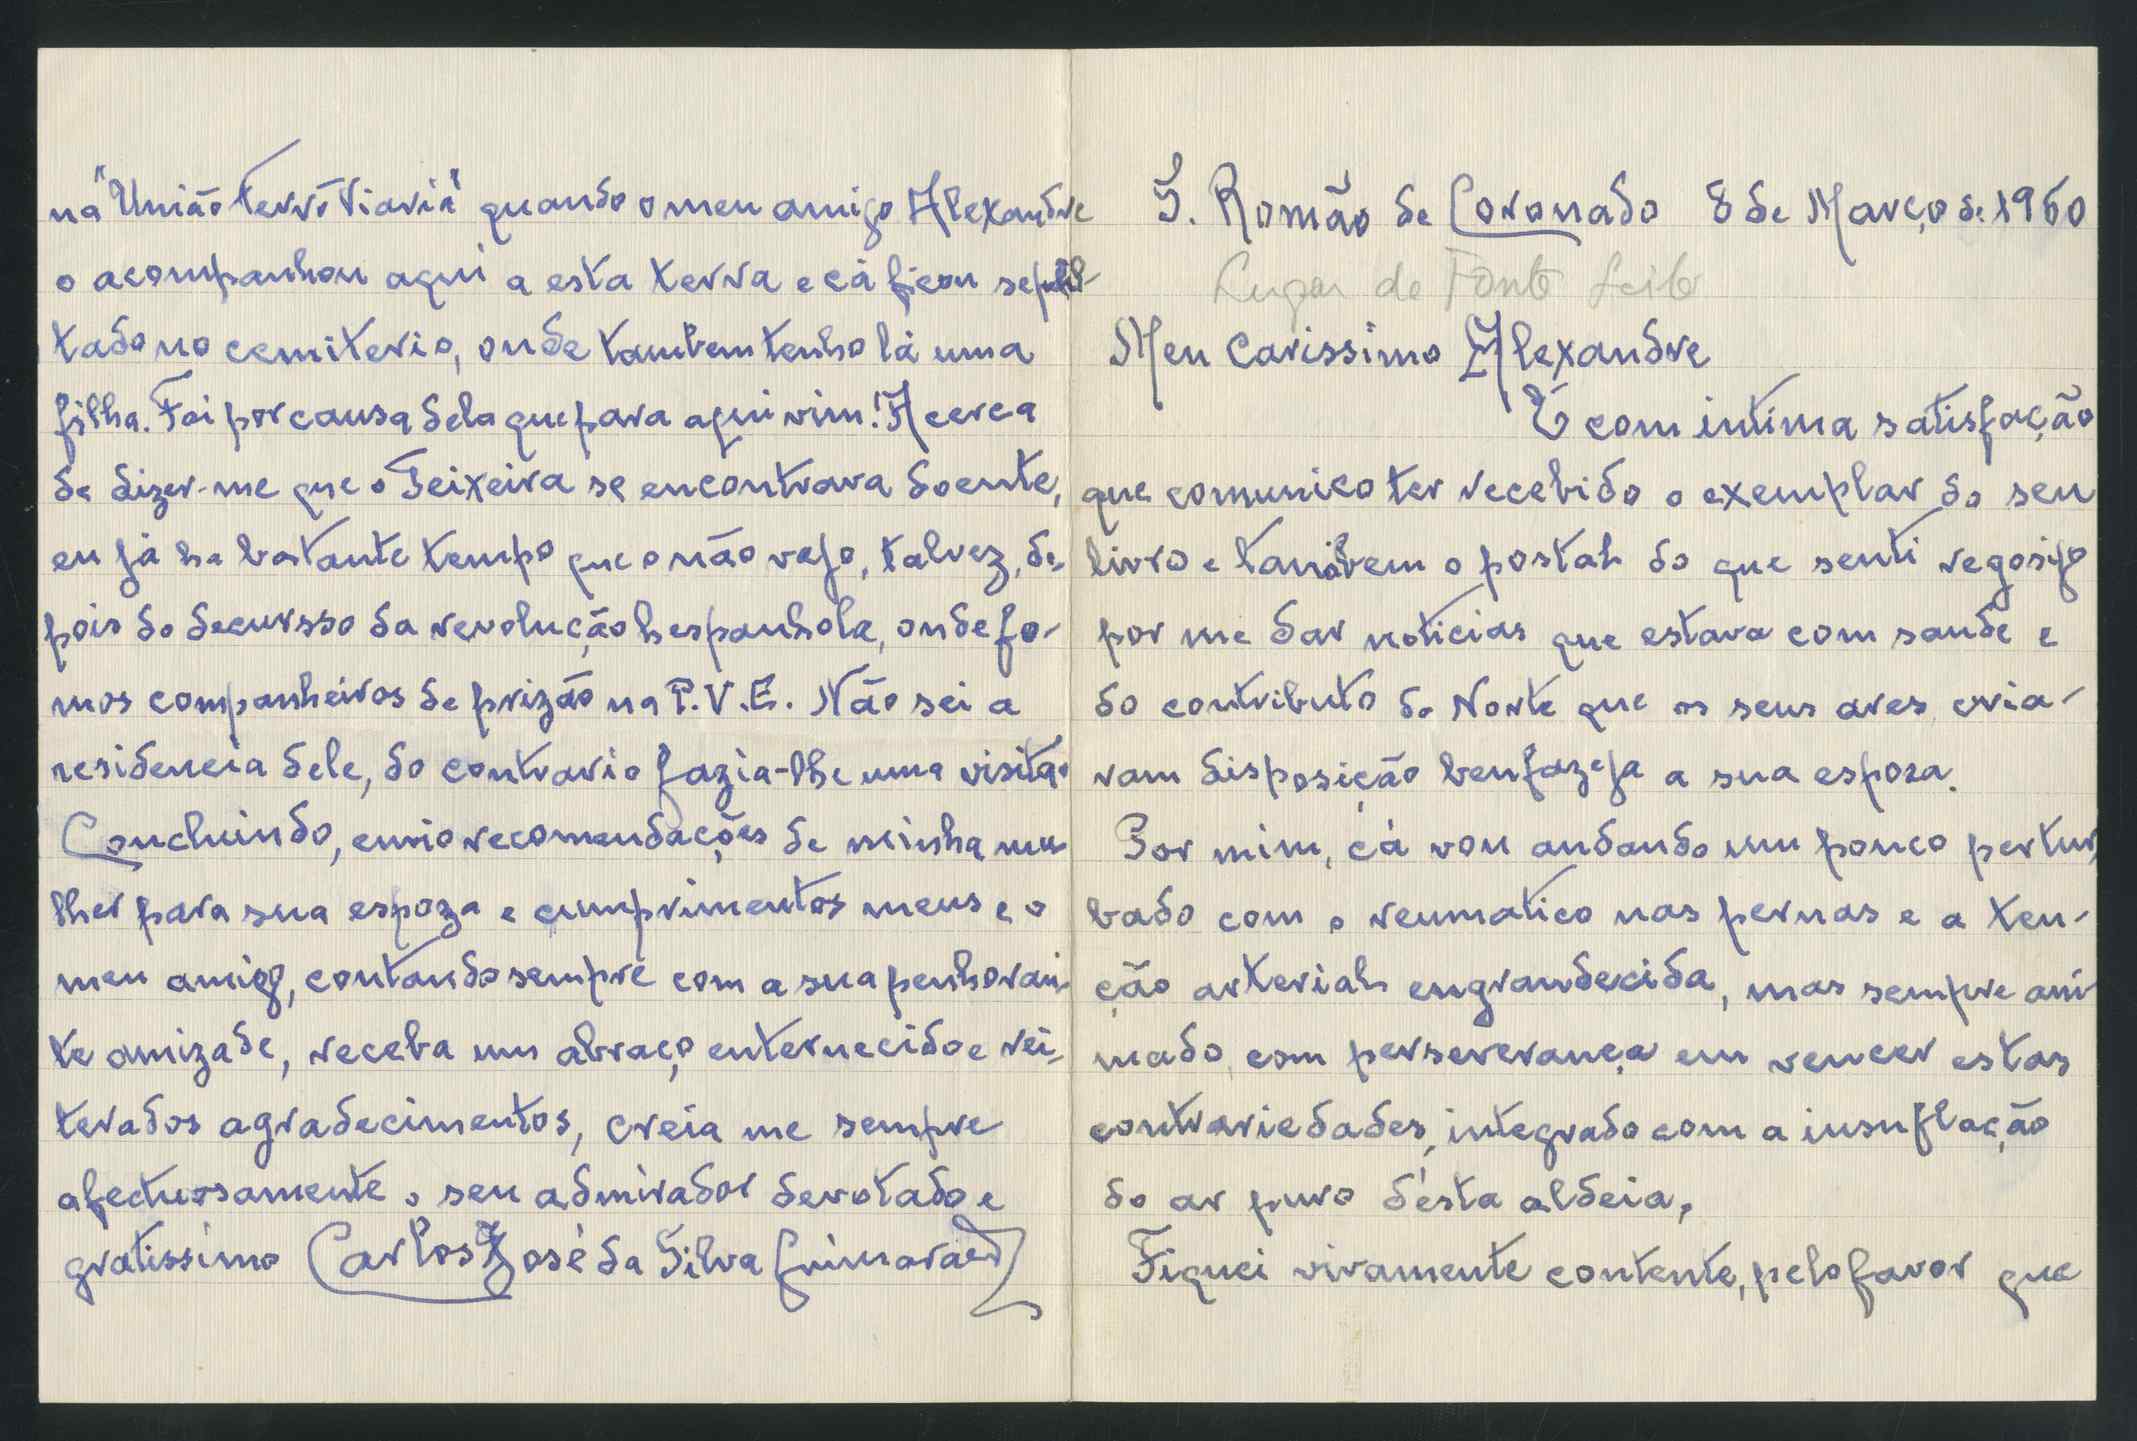 S. Romão de Coronado 8 de Março de 1960
Lugar de Fonte Leite
Meu Carissimo Alexandre
É com intima satisfação
que comunico ter recebido o exemplar do seu
livro e tambem o postal do que senti regosijo
por me dar noticias que estava com saude e
do contributo do Norte que os seus ares cria-
vam disposição benfazeja a sua esposa.
Por mim, cá vou andando um pouco pertur-
bado com o reumatico nas pernas e a ten-
ção arterial engrandecida, mas sempre ani-
mado, com perseverança em vencer estas
contrariedades, integrado com a insuflação
do ar puro d'ésta aldeia.
Fiquei vivamente contente, pelo favor que
na "União Ferróviaria" quando o meu amigo Alexandre
o acompanhou aqui a esta terra e cá ficou sepul-
tado no cemiterio, onde tambem tenho lá uma
filha. Foi por causa dela que para aqui vim! Acerca
de dizer-me que o Teixeira se encontrava doente,
eu já ha bastante tempo que o não vejo, talvez, de-
pois do decursso da revolução hespanhola, onde fo-
mos companheiros de prizão na P.V.E. Não sei a
residencia dele, do contrario fazia-lhe uma visita.
Concluindo, envio recomendações de minha mu-
lher para sua espoza e cumprimentos meus e o
meu amigo, contando sempre com a sua penhoran-
te amizade, receba um abraço enternecido e rei-
terados agradecimentos, creia me sempre
afectuosamente o seu admirador devotado e
gratissimo Carlos José da Silva Guimarães